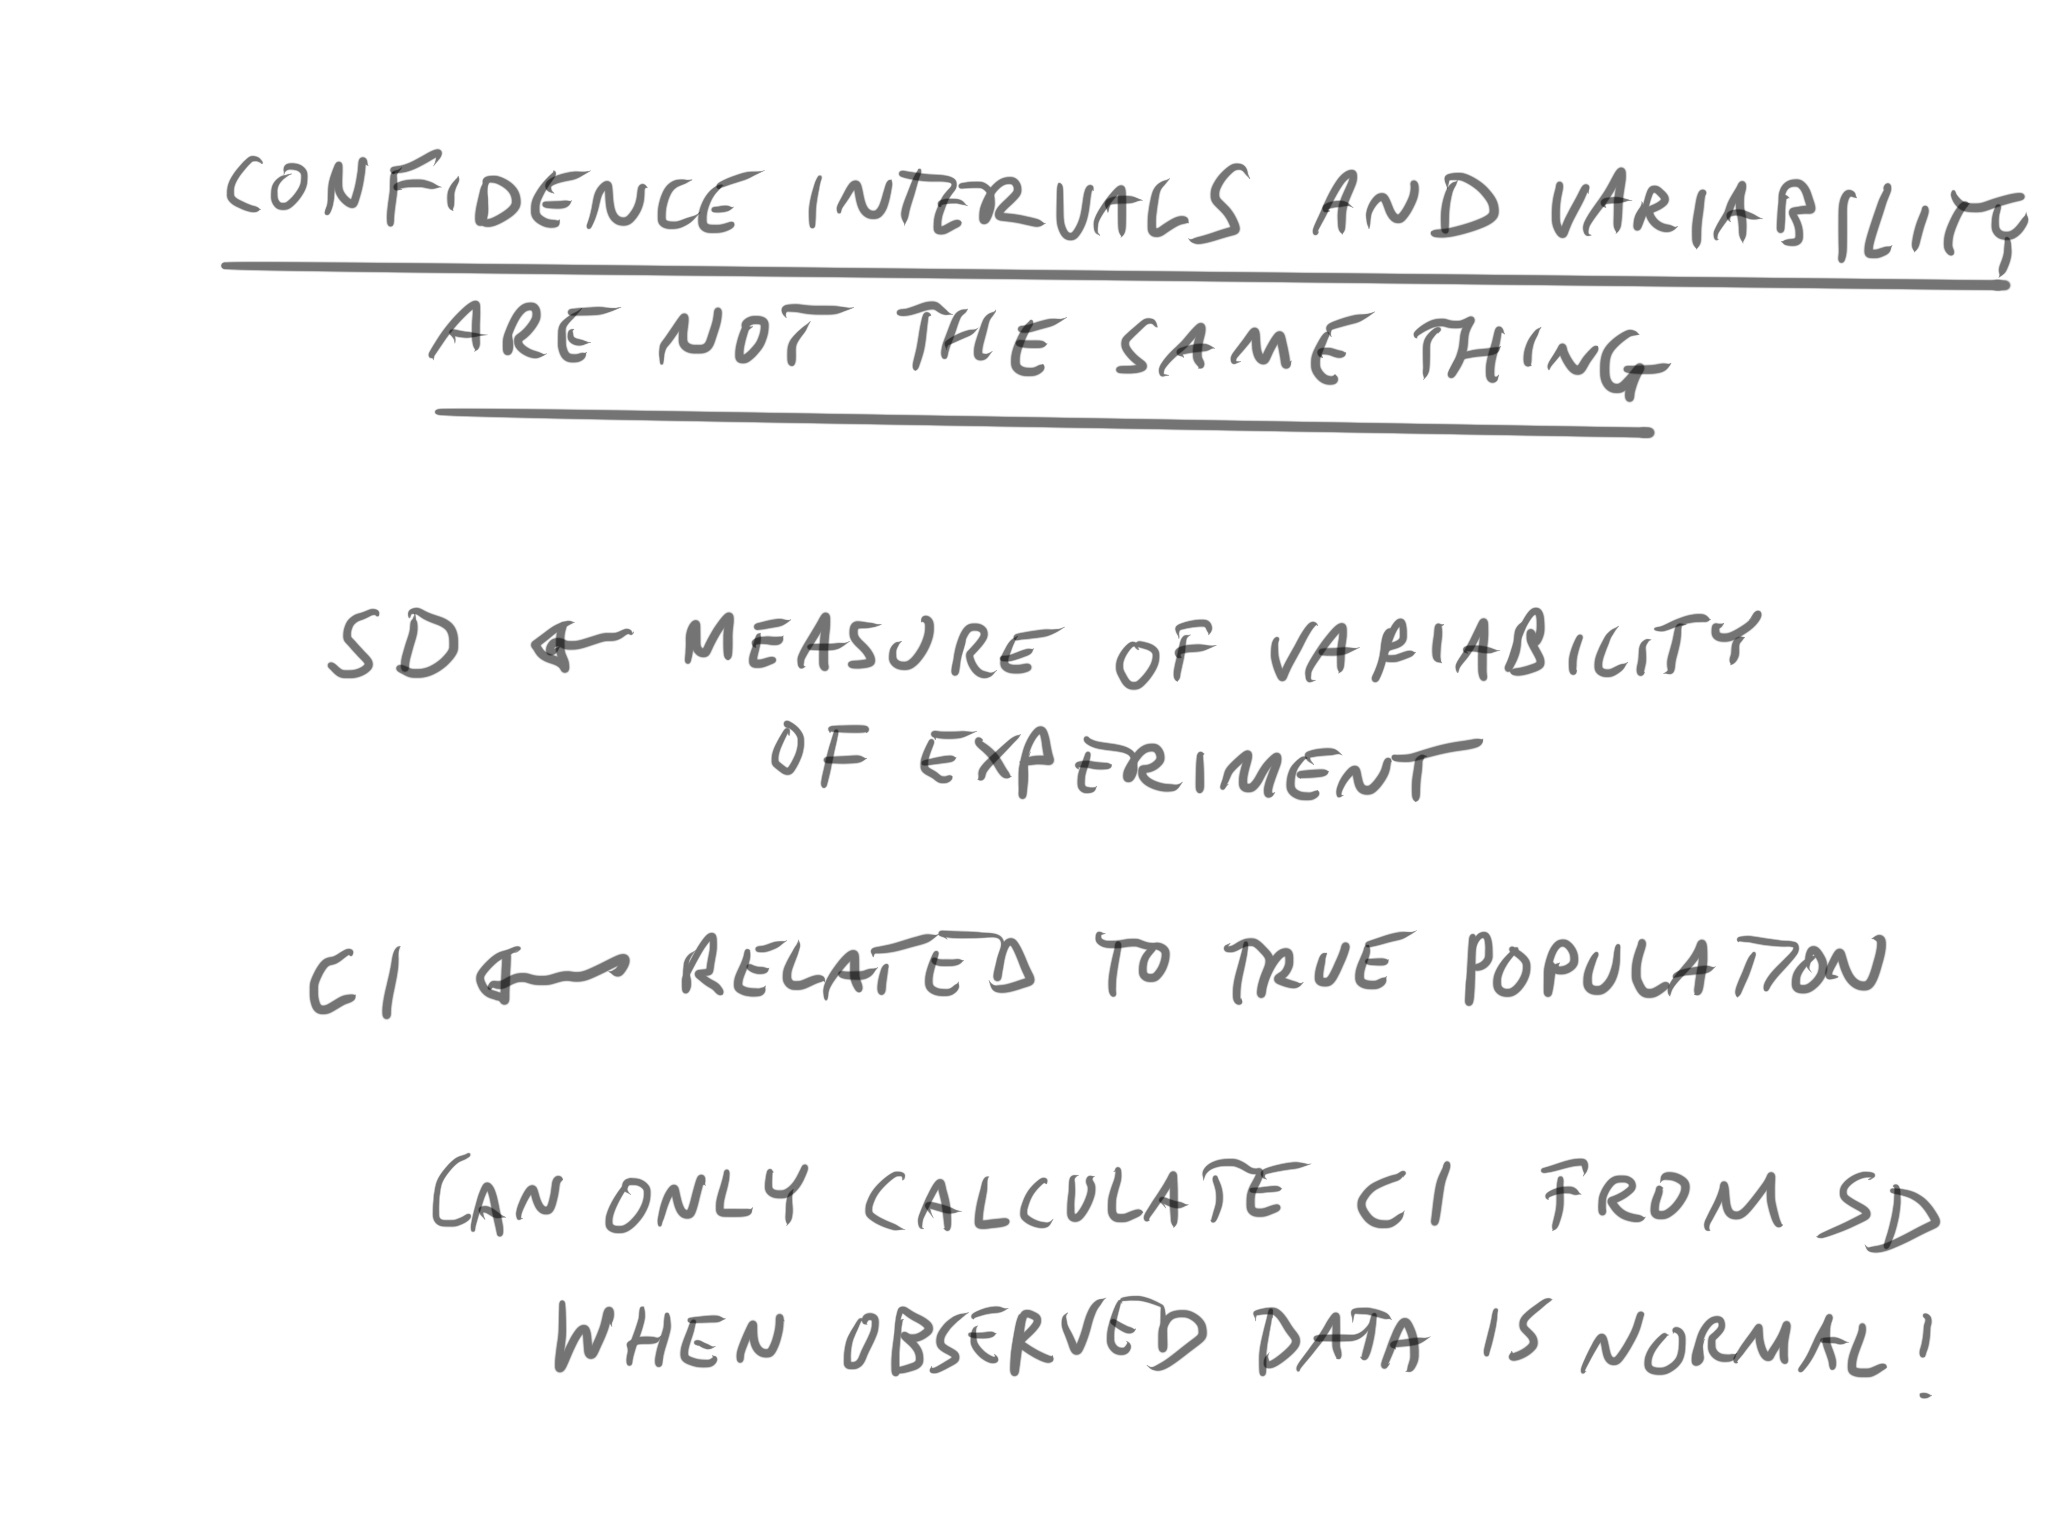 CONFIDENCE INTERVALS AND VARIABILITY
ARE NOT THE SAME THING
SD ← MEASURE OF VARIABILITY
OF EXPERIMENT
CI ← RELATED TO TRUE POPULATION
CAN ONLY CALCULATE CI FROM SD
WHEN OBSERVED DATA IS NORMAL!